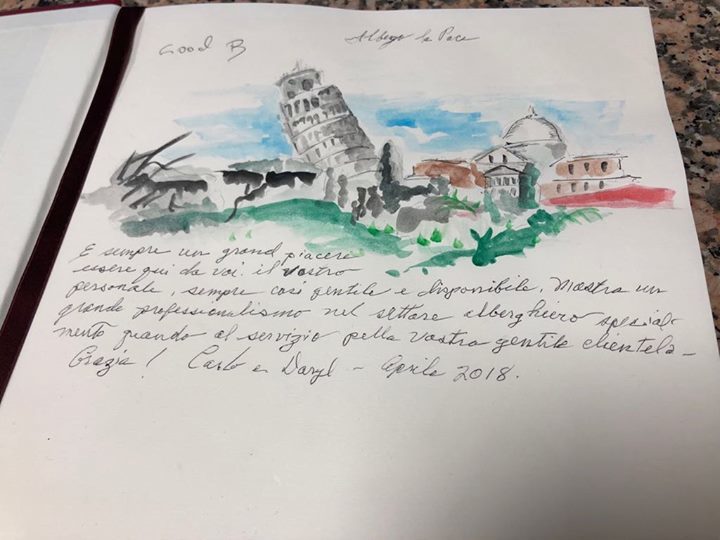 Good B
Albego la Pace
E sempre un grand piacere
essere qui da voi. il vostro
personale, sempre così gentile e disponibile, Mostra un
grande professionalismo nel settore alberghiero spesial-
mento quando al servizio pella vostra gentile clientela -
Grazia! Carlo e Daryl - Aprile 2018.